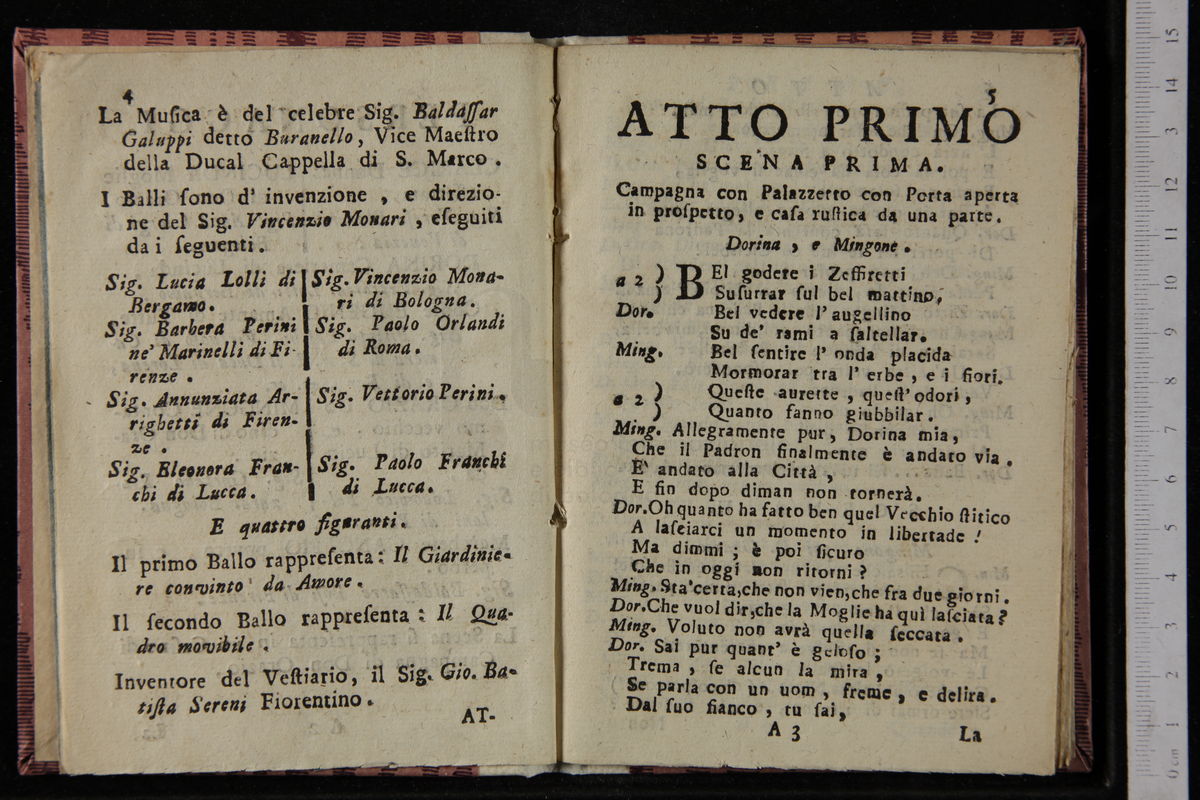 4
La Muſica è del celebre Sig. Baldaſſar
Galuppi detto Buranello, Vice Maeſtro
della Ducal Cappella di S. Marco.
I Balli ſono d' invenzione, e direzio-
ne del Sig. Vincenzio Monari, eſeguiti
da i ſeguenti.
Sig. Lucia Lolli di
Bergamo.
Sig. Barbera Perini
ne' Marinelli di Fi-
renze.
Sig. Annunziata Ar-
righetti di Firen-
ze.
Sig. Eleonora Fran-
chi di Lucca.
Sig. Vincenzio Mona-
ri di Bologna.
Sig. Paolo Orlandi
di Roma.
Sig. Vettorio Perini.
Sig. Paolo Franchi
di Lucca.
E quattro figuranti.
Il primo Ballo rappreſenta: Il Giardinie-
re convinto da Amore.
Il ſecondo Ballo rappreſenta: Il Qua-
dro movibile.
Inventore del Veſtiario, il Sig. Gio. Ba-
tiſta Sereni Fiorentino.
AT-
5
ATTO PRIMO
SCENA PRIMA.
Campagna con Palazzetto con Porta aperta
in proſpetto, e caſa ruſtica da una parte.
Dorina, e Mingone.
a 2 ) BEl godere i Zeffiretti
) Suſurrar ſul bel mattino,
Dor. Bel vedere l' augellino
Su de' rami a ſaltellar.
Ming. Bel ſentire l' onda placida
Mormorar tra l' erbe, e i fiori.
a 2 ) Queſte aurette, queſt' odori,
) Quanto fanno giubbilar.
Ming. Allegramente pur, Dorina mia,
Che il Padron finalmente è andato via.
E' andato alla Città,
E fin dopo diman non tornerà.
Dor. Oh quanto ha fatto ben quel Vecchio ſtitico
A laſciarci un momento in libertade!
Ma dimmi; è poi ſicuro
Che in oggi non ritorni?
Ming. Sta' certa, che non vien, che fra due giorni.
Dor. Che vuol dir, che la Moglie ha quì laſciata?
Ming. Voluto non avrà quella ſeccata.
Dor. Sai pur quant' è geloſo;
Trema, ſe alcun la mira,
Se parla con un uom, freme, e delira.
Dal ſuo fianco, tu ſai,
A 3
La
0 cm 1 2 3 4 5 6 7 8 9 10 11 12 13 14 15